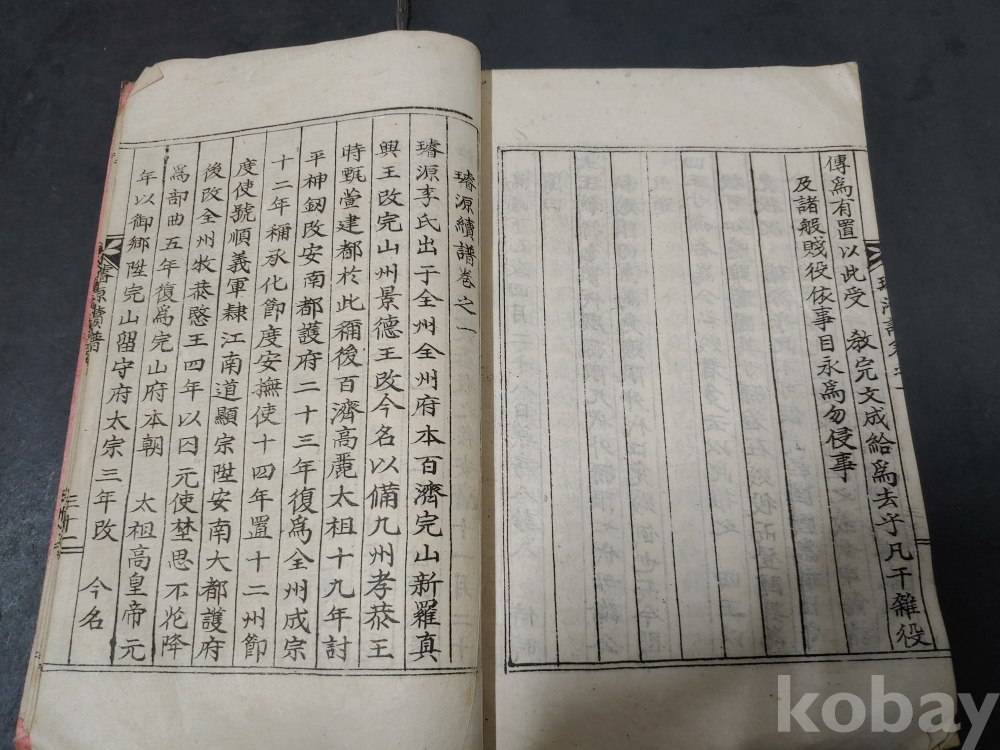 傳爲有置以此受 敎完文成給爲去乎凡干雜役
及諸般賤役依事目永爲勿侵事
璿源續譜卷之一
璿源李氏出于全州全州府本百濟完山新羅真
興王改完山州景德王改今名以備九州孝恭王
時甄萱建都於此稱後百濟高麗太祖十九年討
平神釰改安南都護府二十三年復爲全州成宗
十二年稱承化節度安撫使十四年置十二州節
度使號順義軍隷江南道顯宗陞安南大都護府
後改全州牧恭愍王四年以囚元使埜思不花降
爲部曲五年復爲完山府本朝 太祖高皇帝元
年以御鄉陞完山留守府太宗三年改 今名
璿源續譜
kobay